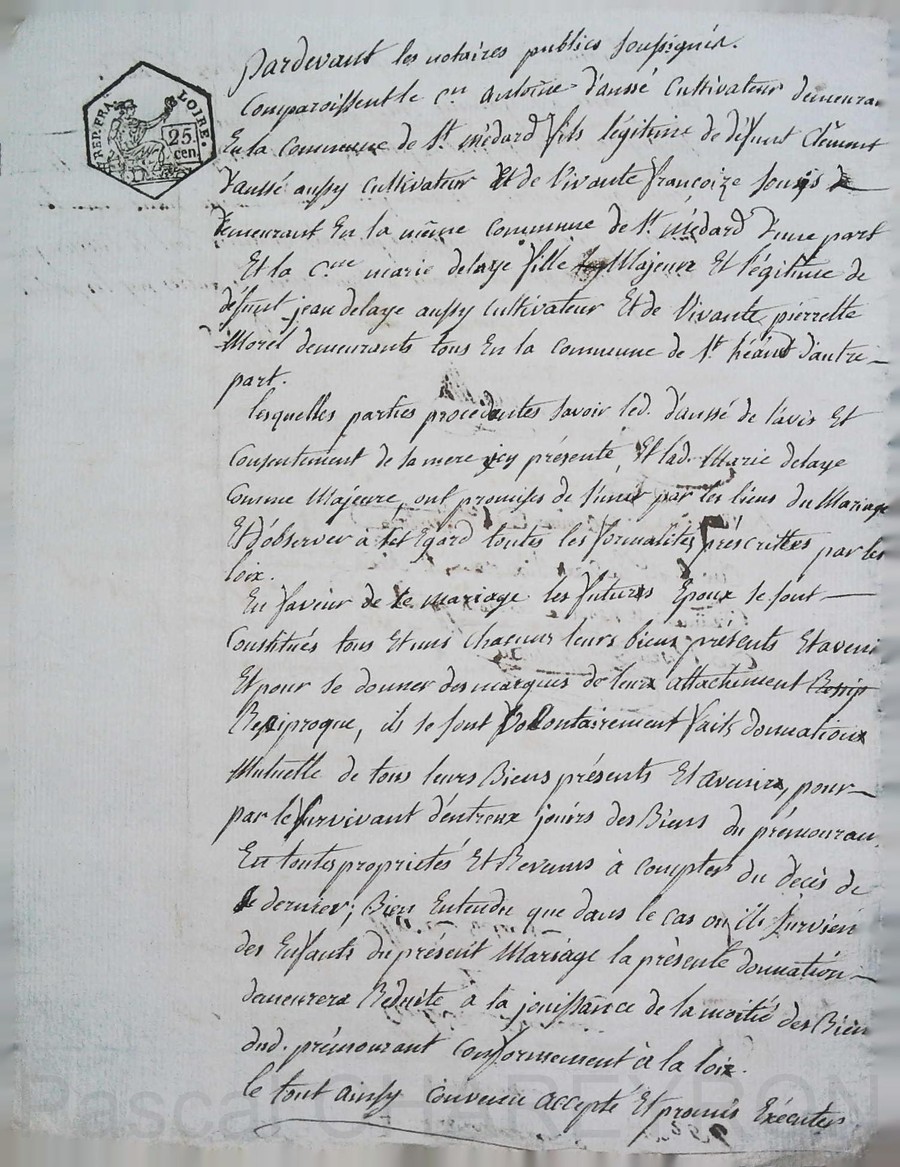 REP. FRA. LOIRE.
25
cen
Pardevant les notaires publics soussignés.
Comparoissent le cn. antoine d'aussé Cultivateur demeuran
En la Commune de St. médard fils légitime de défunt Clément
d'aussé aussy cultivateur Et de vivante françoize
demeurant En la même Commune de St. médard d'une part
Et la cne marie delaye fille Majeure Et légitime de
défunt jean delaye aussy cultivateur Et de vivante pierrette
Morel demeurants tous En la Commune de St. héand d'autre
part.
lesquelles parties procédantes savoir led. d'aussé de l'avis Et
Consentement de sa mere icy présente, Et lad. Marie delaye
Comme Majeure, ont promises de s'unir par les liens du Mariage
Et d'observer a cet Egard toutes les formalités prescrittes par les
loix.
En faveur de ce mariage les futurs Epoux se sont
Constitués tous Et uns chacuns leurs biens présents Et aveni
Et pour se donner des marques de leur attachement
Reciproque, ils se sont volontairement faits donnations
Mutuelle de tous leurs Biens présents Et avenirs, pour
par le survivant d'entreux jouirs des Biens du prémouran
En toutes propriétés Et Revenus à compter du décès de
ce dernier; Bien Entendu que dans le cas ou il survien
des Enfants du présent Mariage la présente donnation
demeurera Reduite a la jouissance de la moitié des Bien
dud. prémourant Conformement à la loix.
le tout ainsy convenu accepté Et promis Exécuter
Pascal CHAREYRON